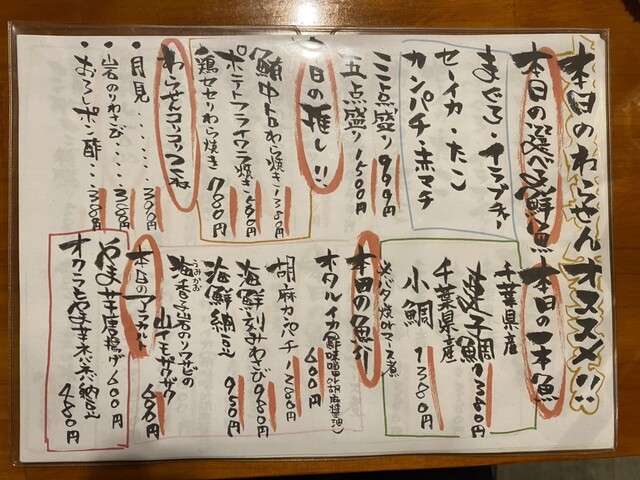 本日のわらせんオススメ!!
本日の選べる鮮魚
まぐろ・イラブチャー
セーイカ・たこ
カンパチ・赤マチ
三点盛り 999円
五点盛り 1500円
本日の推し!!
鮪中トロわら焼き 1380円
ポテトフライワラ焼き 580円
鶏セセリわら焼き 780円
わらせんコリコリつくね
・月見・・・・・300円
・岩のりわさび・・・200円
・おろしポン酢・・・200円
本日の一本魚
千葉県産
連子鯛 1380円
千葉県産
小鯛 1380円
※バタ焼orマース煮
本日の魚介
ホタルイカ(酢味噌or胡麻醤油)
600円
胡麻カンパチ 1280円
海鮮刻みわさび 980円
海鮮納豆 950円
海香る岩のりワサビの
山イモザクザク 680円
本日のアラカルト
やま芋唐揚げ 600円
オクラとやま芋ネバネバ納豆
480円